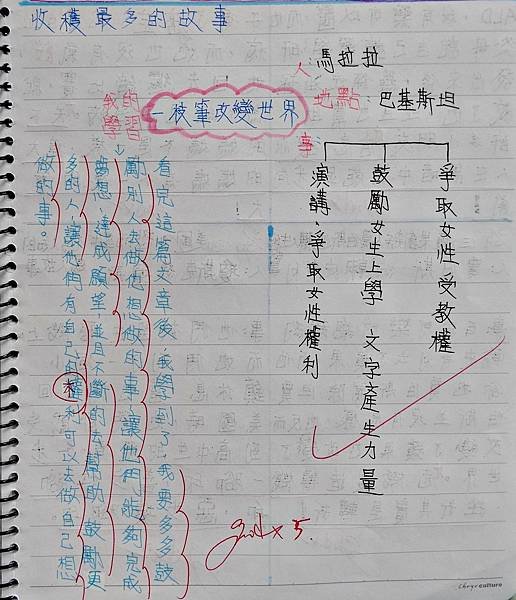 收穫最多的故事
人:馬拉拉
地點:巴基斯坦
事:
爭取女性受教權
鼓勵女生上學 文字產生力量
演講:爭取女性權利
一枝筆改變世界
我的
學習
看完這篇文章後,我學到了我要多多鼓
勵別人去做他想做的事,讓他們能夠完成
夢想,達成願望,並且不斷的去幫助、鼓勵更
多的人,讓他們有自己的權利可以去做自己想
做的事。
木
good x 5.
culture